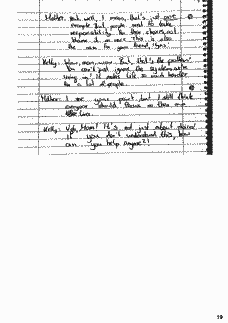 Mother: Well, well, I mean, that's just one
example. But people need to take
responsibility for their choices, not
blame it on race. This is also
the case for your friend, Tyrus.
Kelly: Wow, mom, wow. But, that's the problem!
You can't just ignore the systemic
racism. It makes life so much harder
for a lot of people.
Mother: I see your point, but I still think
everyone should focus on their own
lives.
Kelly: Ugh, Mom! It's not just about
If you don't understand this, how
can you help anyone?!
19